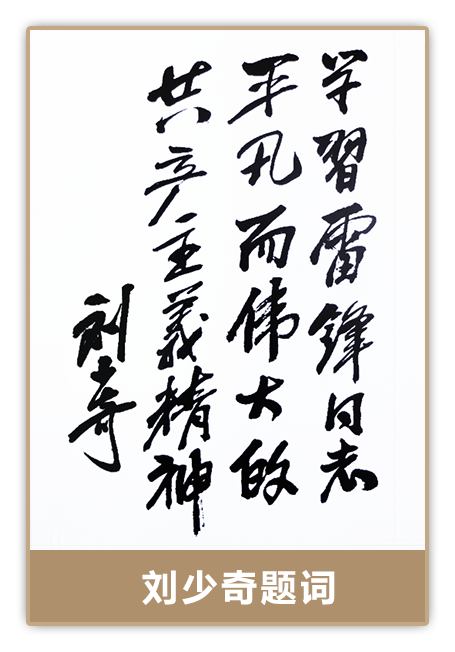 学習雷锋同志
平凡而伟大的
共产主義精神
刘少奇
刘少奇题词